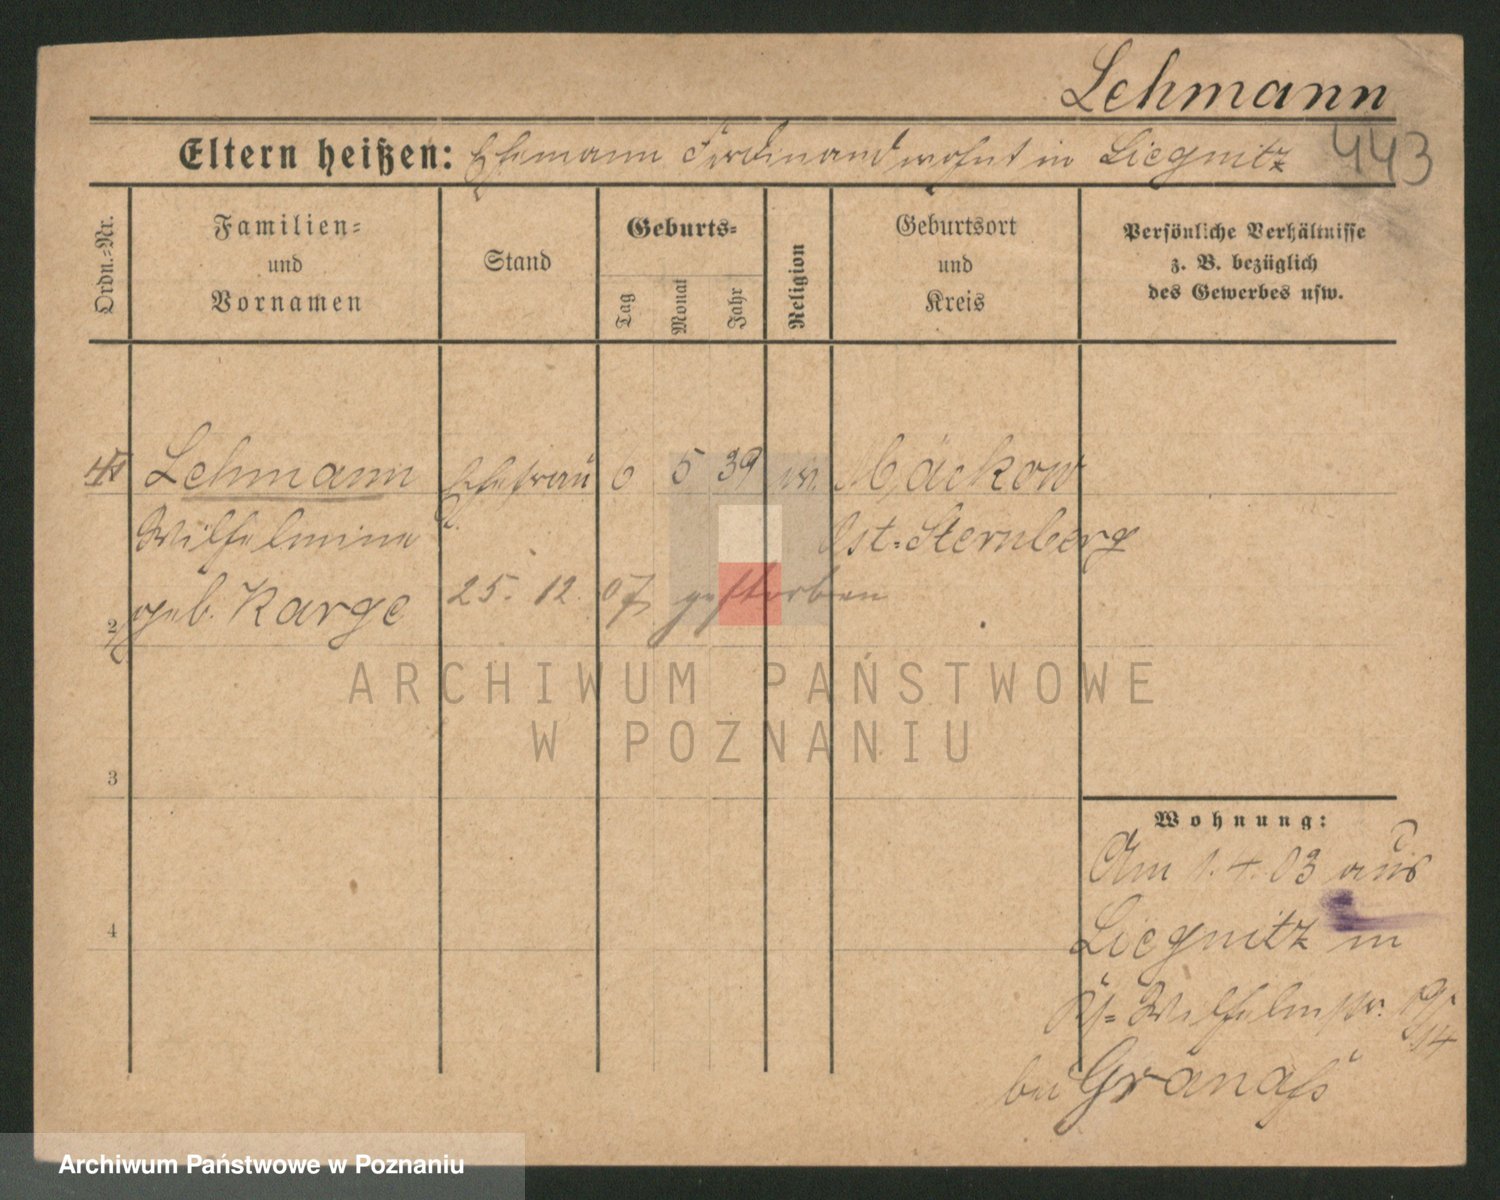 Lehmann
Eltern heißen: Ehemann Ferdinand wohnt in Liegnitz 443
Ordn.-Nr.
Familien-
und
Vornamen
Stand
Geburts-
Tag
Monat
Jahr
Religion
Geburtsort
und
Kreis
Persönliche Verhältnisse
z. B. bezüglich
des Gewerbes usw.
Lehmann Ehefrau 6 5 39 Mäckow
Wilhelmine Ost-Sternberg
2 geb. Karge 25. 12. 07 gestorben
3
4
Wohnung:
Am 1.4.03 aus
Liegnitz in
Wilhelmstr.
bei
ARCHIWUM PAŃSTWOWE
W POZNANIU
Archiwum Państwowe w Poznaniu